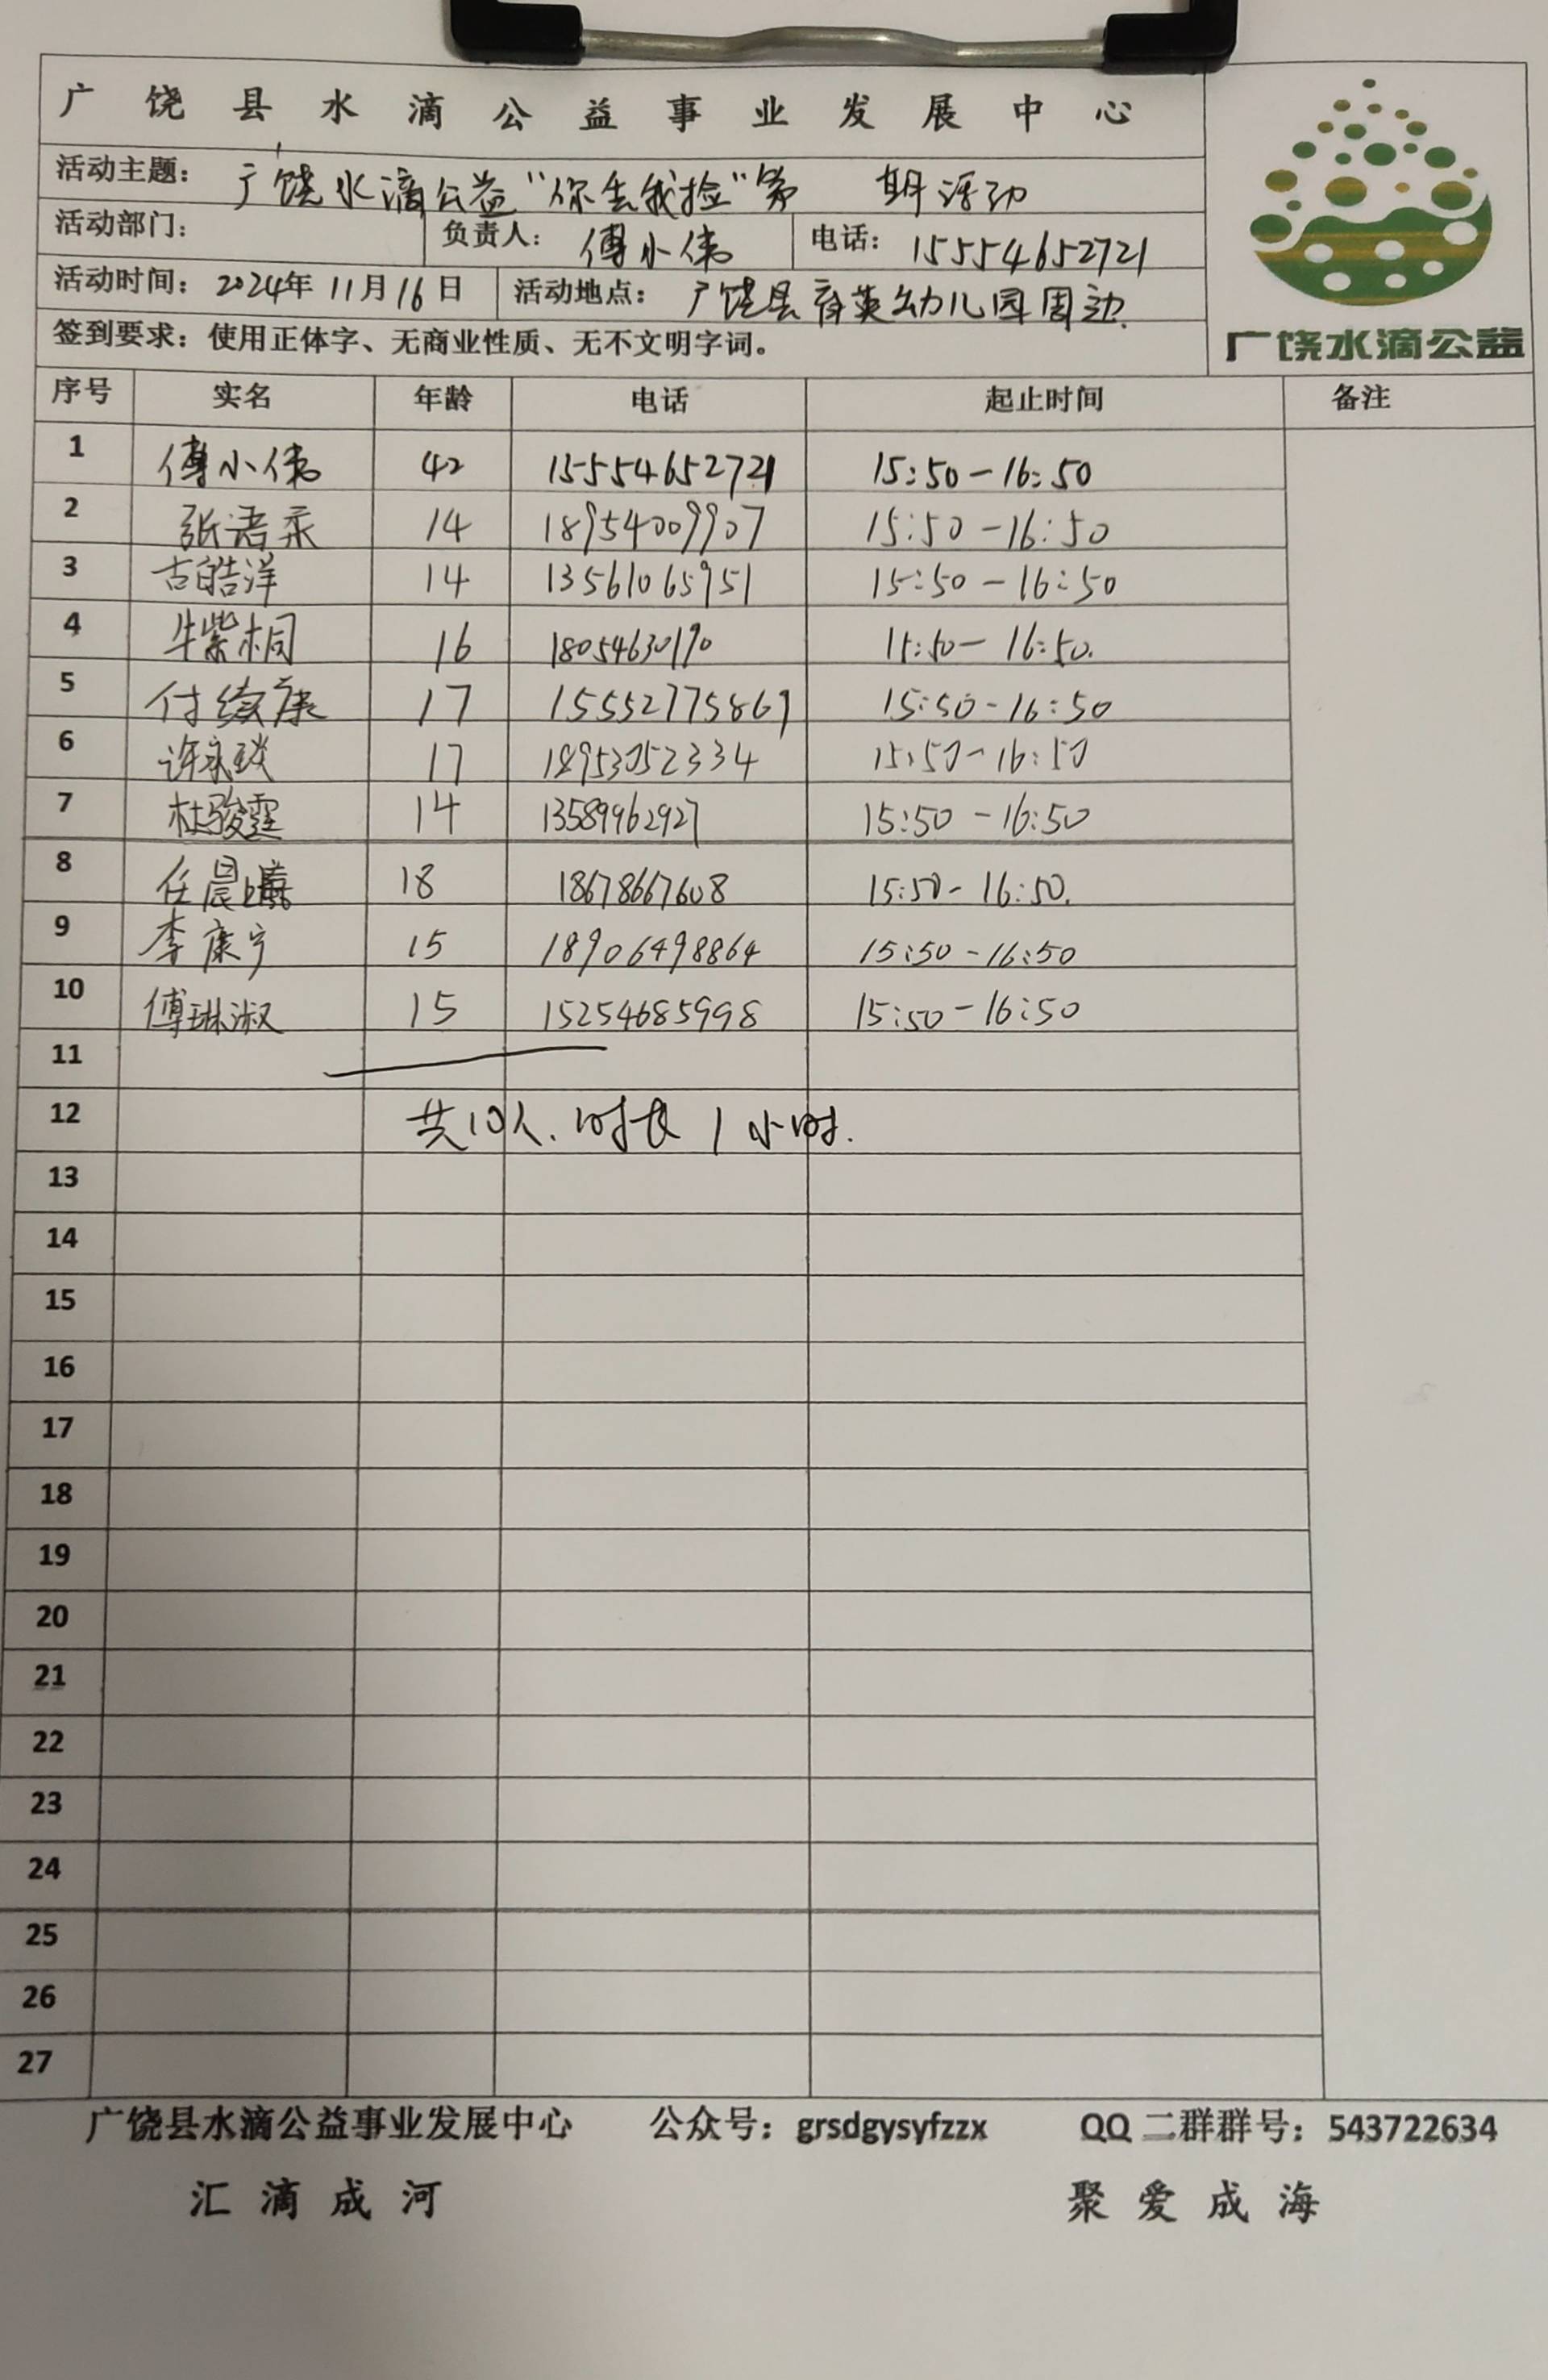 广饶县水滴公益事业发展中心
活动主题：广饶水滴公益"你丢我捡"第 期活动
活动部门： 负责人：傅小伟 电话：15554652721
活动时间：2024年11月16日 活动地点：广饶县育英幼儿园周边.
签到要求：使用正体字、无商业性质、无不文明字词。
广饶水滴公益
序号 实名 年龄 电话 起止时间 备注
1 傅小伟 42 15554652721 15:50-16:50
2 张语柔 14 18954009907 15:50-16:50
3 古皓洋 14 13561065951 15:50-16:50
4 牛紫桐 16 18054630190 15:50-16:50.
5 付续康 17 15552775869 15:50-16:50
6 许永琰 17 18953052334 15:50-16:50
7 杜骏霆 14 13589962927 15:50-16:50
8 任晨 18 18678667608 15:50-16:50.
9 李康宁 15 18906498864 15:50-16:50
10 傅琳淑 15 15254685998 15:50-16:50
11
12 共10人.时长1小时.
13
14
15
16
17
18
19
20
21
22
23
24
25
26
27
广饶县水滴公益事业发展中心 公众号：grsdgysyfzzx QQ二群群号：543722634
汇滴成河 聚爱成海